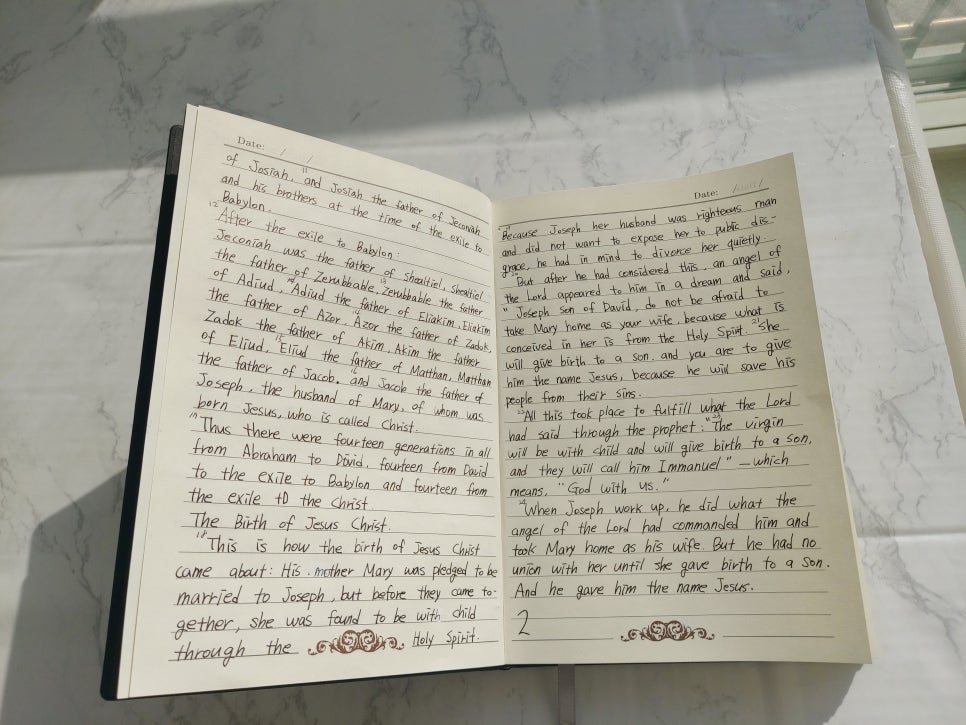 Date: / /
of Josiah, ¹¹and Josiah the father of Jeconiah
and his brothers at the time of the exile to
Babylon.
¹²After the exile to Babylon:
Jeconiah was the father of Shealtiel, Shealtiel
the father of Zerubbable, ¹³Zerubbable the father
of Adiud, Adiud the father of Eliakim, Eliakim
the father of Azor, ¹⁴Azor the father of Zadok,
Zadok the father of Akim, Akim the father
of Eliud, ¹⁵Eliud the father of Matthan, Matthan
the father of Jacob, ¹⁶and Jacob the father of
Joseph, the husband of Mary, of whom was
born Jesus, who is called Christ.
¹⁷Thus there were fourteen generations in all
from Abraham to David, fourteen from David
to the exile to Babylon and fourteen from
the exile to the Christ
The Birth of Jesus Christ.
¹⁸This is how the birth of Jesus Christ
came about: His mother Mary was pledged to be
married to Joseph, but before they came to-
gether, she was found to be with child
through the Holy Spirit.
Date: / /
¹⁹Because Joseph her husband was righteous man
and did not want to expose her to public dis-
grace, he had in mind to divorce her quietly
²⁰But after he had considered this, an angel of
the Lord appeared to him in a dream and said,
"Joseph son of David, do not be afraid to
take Mary home as your wife, because what is
conceived in her is from the Holy Spirit. ²¹She
will give birth to a son, and you are to give
him the name Jesus, because he will save his
people from their sins.
²²All this took place to fulfill what the Lord
had said through the prophet: ²³"The virgin
will be with child and will give birth to a son,
and they will call him Immanuel" — which
means, "God with us."
²⁴When Joseph work up, he did what the
angel of the Lord had commanded him and
took Mary home as his wife. But he had no
union with her until she gave birth to a son.
And he gave him the name Jesus.
2